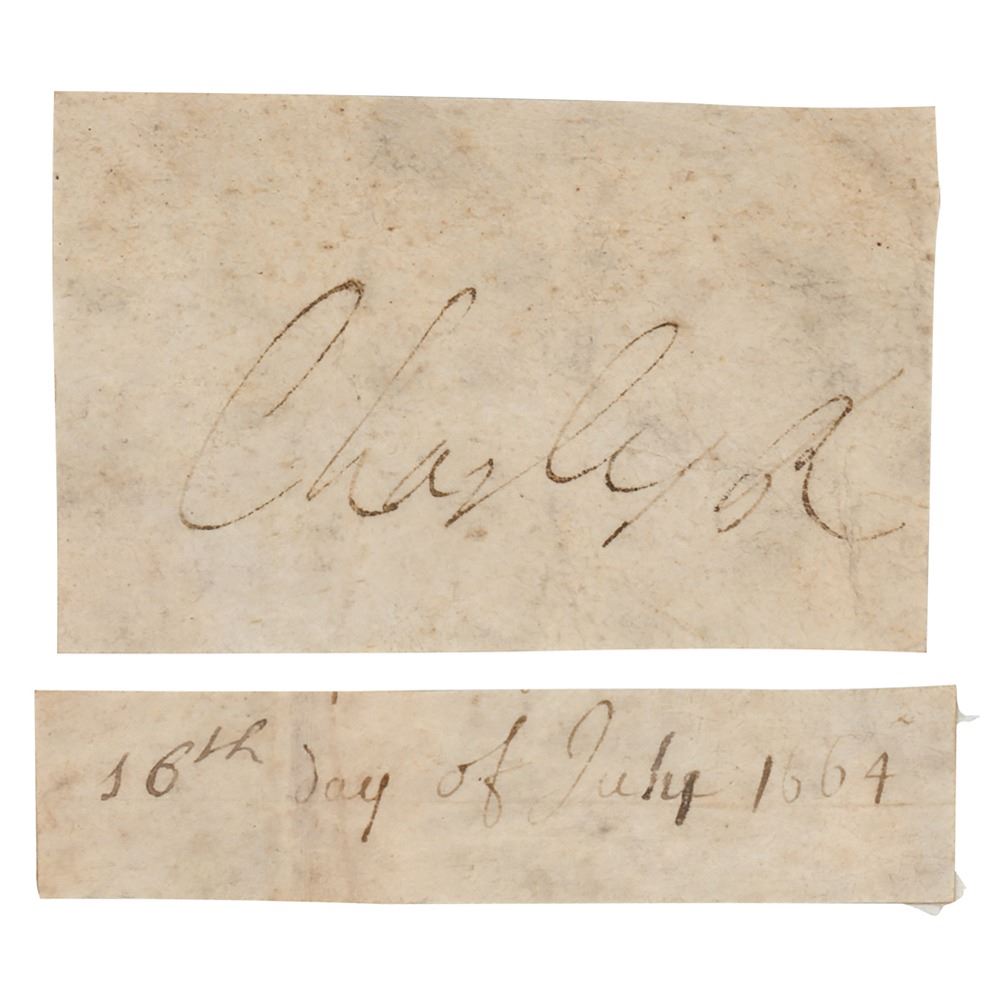 Charles R
16th day of July 1664